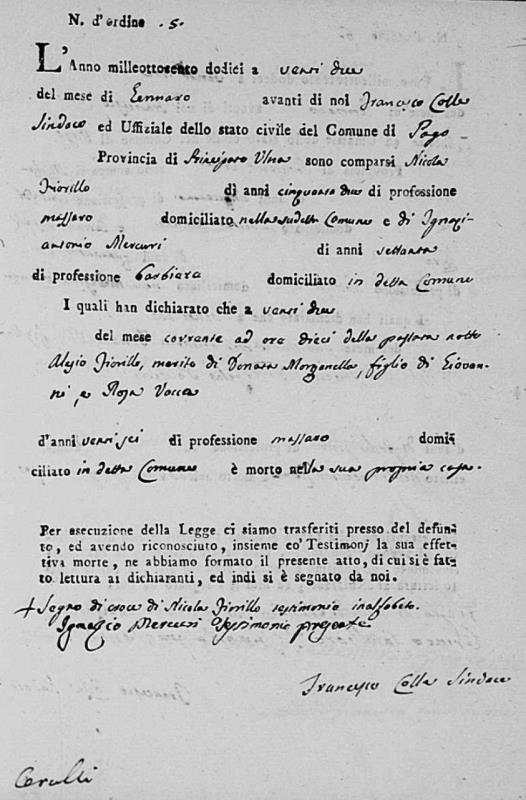 N. d'ordine .5.
L'Anno milleottocento dodici a venti due
del mese di Gennaro avanti di noi Francesco Colla
Sindaco ed Uffiziale dello stato civile del Comune di Pago
Provincia di Principato Ulra sono comparsi Nicola
Fiorillo di anni cinquanta due di professione
massaro domiciliato nella sudetta Comune e di Ignazi-
antonio Mercuri di anni settanta
di professione barbiere domiciliato in detta Comune
I quali han dichiarato che a venti due
del mese corrente ad ore dieci della passata notte
Alesio Fiorillo, marito di Donata Morganella, figlio di Giovan-
ni, e Rosa Vacca
d'anni ventisei di professione massaro domi-
ciliato in detta Comune è morto nella sua propria casa.
Per esecuzione della Legge ci siamo trasferiti presso del defun-
to, ed avendo riconosciuto, insieme co' Testimonj la sua effet-
tiva morte, ne abbiamo formato il presente atto, di cui si è fat-
to lettura ai dichiaranti, ed indi si è segnato da noi.
+ Segno di croce di Nicola Fiorillo testimonio inalfabeto.
Ignazio Mercuri Testimonio presente
Francesco Colla Sindaco
Cerulli